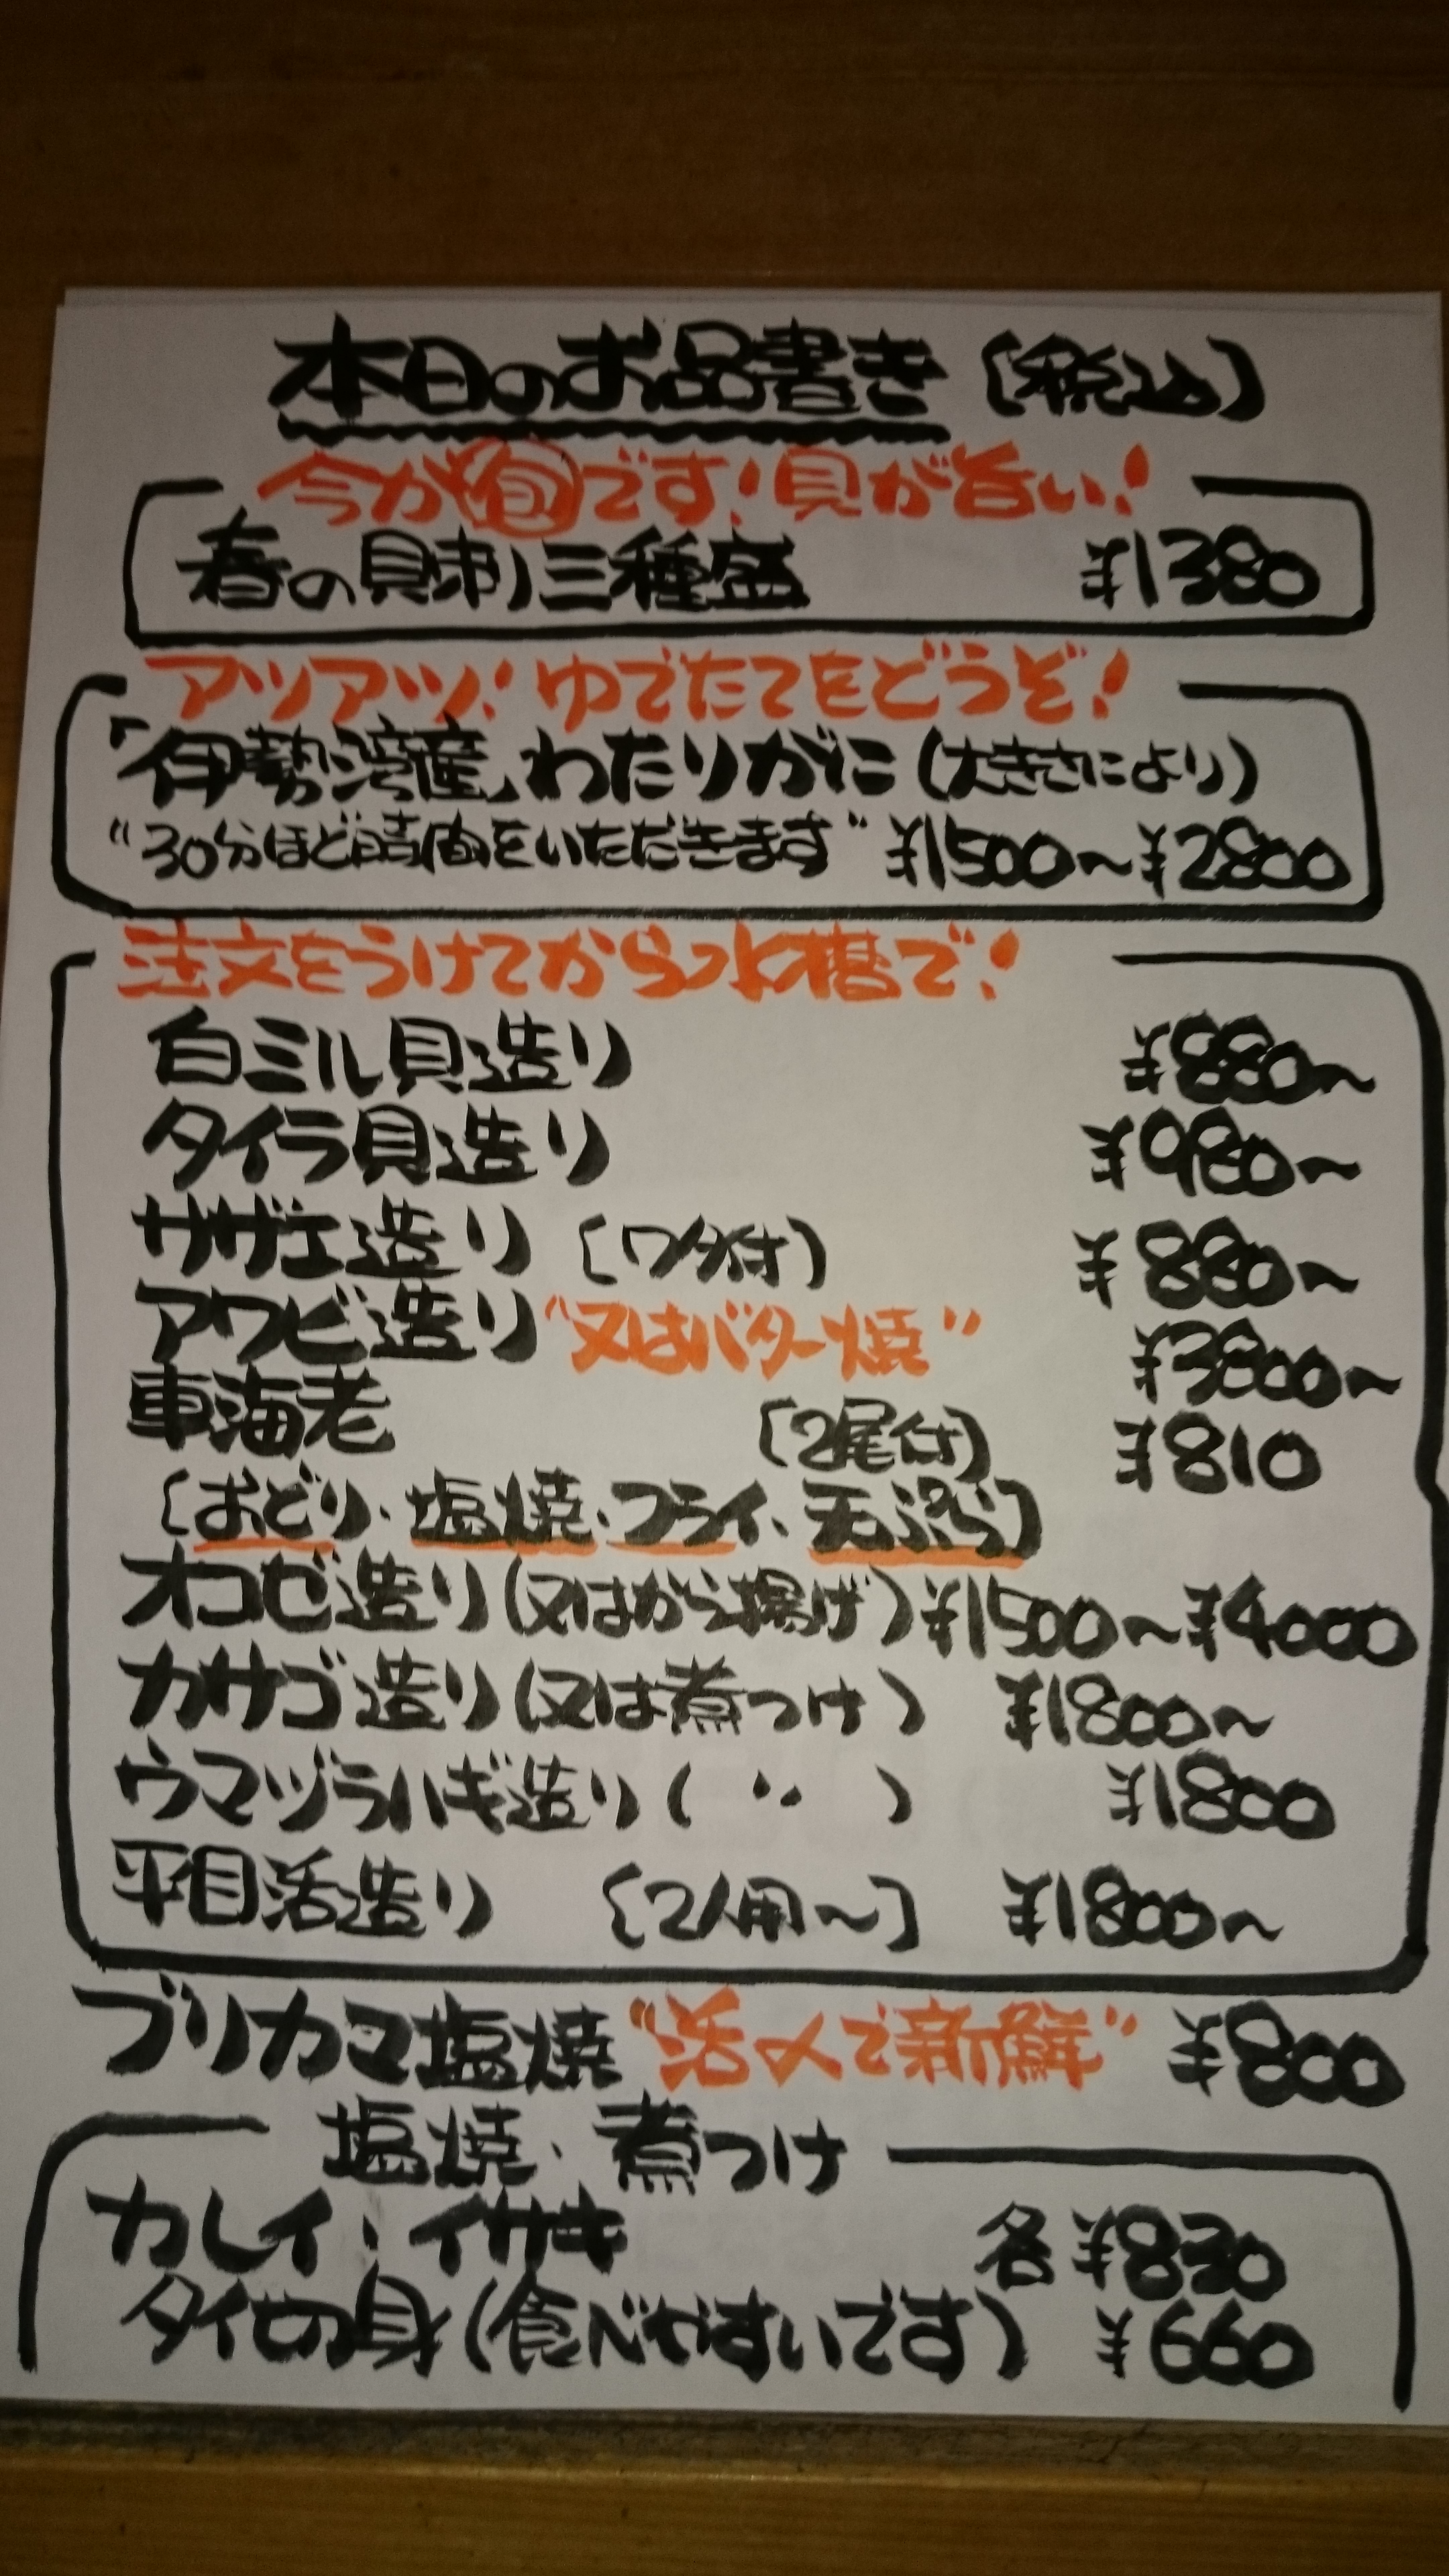 本日のお品書き〔税込〕
今が旬です!貝が旨い!
春の貝刺三種盛 ¥1380
アツアツ!ゆでたてをどうぞ!
「伊勢湾産」わたりがに(大きさにより)
"30分ほど時間をいただきます" ¥1500~¥2800
注文をうけてから水槽で!
白ミル貝造り ¥880~
タイラ貝造り ¥980~
サザエ造り〔ワタ付〕 ¥880~
アワビ造り"又はバター焼" ¥3800~
車海老 〔2尾付〕 ¥810
〔おどり・塩焼・フライ・天ぷら〕
オコゼ造り(又はから揚げ) ¥1500~¥4000
カサゴ造り(又は煮つけ) ¥1800~
ウマヅラハギ造り( 〃 ) ¥1800
平目活造り 〔2人用~〕 ¥1800~
ブリカマ塩焼"活〆で新鮮" ¥800
塩焼・煮つけ
カレイ・イサキ 各¥850
タイ切り身(食べやすいです) ¥690